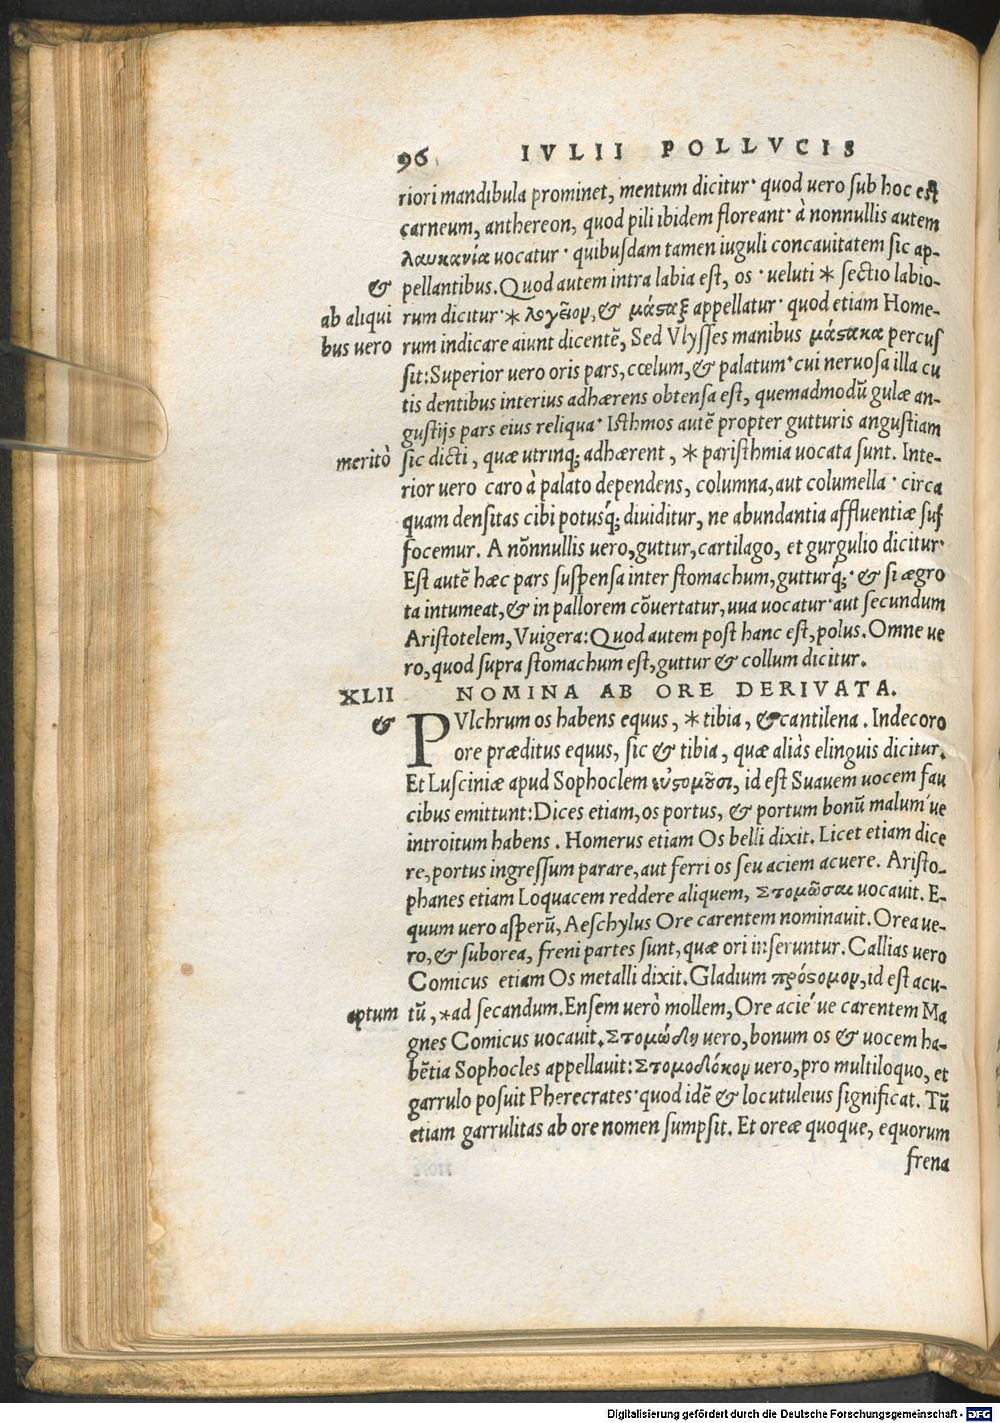 96 IVLII POLLVCIS
riori mandibula prominet, mentum dicitur· quod uero sub hoc est
carneum, anthereon, quod pili ibidem floreant· à nonnullis autem
λαυκανία uocatur· quibusdam tamen iuguli concauitatem sic ap-
& pellantibus. Quod autem intra labia est, os· ueluti * sectio labio-
ab aliqui rum dicitur· * λογεῖον, & μάσαξ appellatur· quod etiam Home-
bus uero rum indicare aiunt dicentē, Sed Vlysses manibus μάσακα percus
sit: Superior uero oris pars, cœlum, & palatum· cui neruosa illa cu
tis dentibus interius adhærens obtensa est, quemadmodū gulæ an-
gustijs pars eius reliqua· Isthmos autē propter gutturis angustiam
meritò sic dicti, quæ utrinq; adhærent, * paristhmia uocata sunt. Inte-
rior uero caro à palato dependens, columna, aut columella· circa
quam densitas cibi potusq́; diuiditur, ne abundantia affluentiæ suf
focemur. A nōnnullis uero, guttur, cartilago, et gurgulio dicitur·
Est autē hæc pars suspensa inter stomachum, gutturq́;· & si ægro
ta intumeat, & in pallorem cōuertatur, uua uocatur· aut secundum
Aristotelem, Vuigera: Quod autem post hanc est, polus. Omne ue
ro, quod supra stomachum est, guttur & collum dicitur.
XLII NOMINA AB ORE DERIVATA.
& PVlchrum os habens equus, * tibia, & cantilena. Indecoro
ore præditus equus, sic & tibia, quæ aliàs elinguis dicitur.
Et Lusciniæ apud Sophoclem εὐϛομοῦσι, id est Suauem uocem fau
cibus emittunt: Dices etiam, os portus, & portum bonū malum´ue
introitum habens. Homerus etiam Os belli dixit. Licet etiam dice
re, portus ingressum parare, aut ferri os seu aciem acuere. Aristo-
phanes etiam Loquacem reddere aliquem, Στομῶσαι uocauit. E-
quum uero asperū, Aeschylus Ore carentem nominauit. Orea ue-
ro, & suborea, freni partes sunt, quæ ori inseruntur. Callias uero
Comicus etiam Os metalli dixit. Gladium πρόϛομον, id est acu-
aptum tū, * ad secandum. Ensem uerò mollem, Ore acié ue carentem Ma
gnes Comicus uocauit. Στομώδη uero, bonum os & uocem ha-
bētia Sophocles appellauit: Στομοδόκον uero, pro multiloquo, et
garrulo posuit Pherecrates· quod idē & locutuleius significat. Tū
etiam garrulitas ab ore nomen sumpsit. Et oreæ quoque, equorum
frena
Digitalisierung gefördert durch die Deutsche Forschungsgemeinschaft - DFG